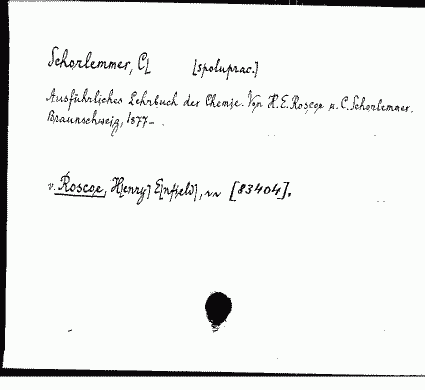 Schorlemmer, C[ [spoluprac.]
Ausführliches Lehrbuch der Chemie. Von H.E. Roscoe u. C. Schorlemmer.
Braunschweig, 1877- .
v. Roscoe, H[enry] E[nfield], [83404].